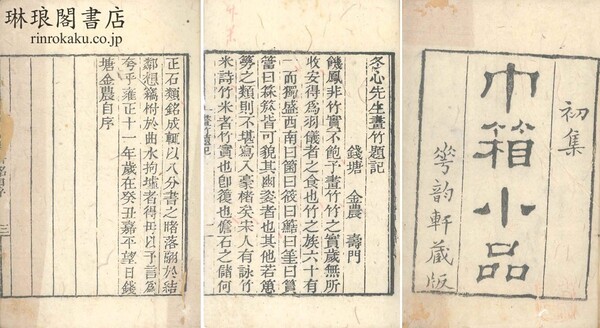 琳琅閣書店
rinrokaku.co.jp
初集
巾箱小品
華韵軒藏版
冬心先生畫竹題記
錢塘 金農 壽門
饑鳳非竹實不飽予畫竹竹之實歲無所
收安得爲羽儀者之食也竹之族六十有
一而獨盛西南曰箇曰筱曰曰曰篔
簹曰箖箊皆可貌其幽姿者也其他若
簩之類則不堪寫入豪楮矣宋人有詠竹
米詩竹米者竹實也卽復也儋石之儲何
正石類銘成輒以八分書之略落於結
鄰想於曲水拘墟者得毋以予言爲
夸乎雍正十一年歲在癸丑嘉平望日錢
塘金農自序
三